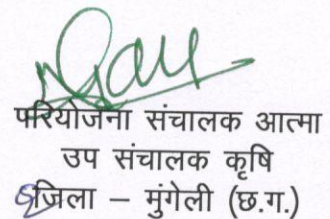 परियोजना संचालक आत्मा
उप संचालक कृषि
जिला – मुंगेली (छ.ग.)